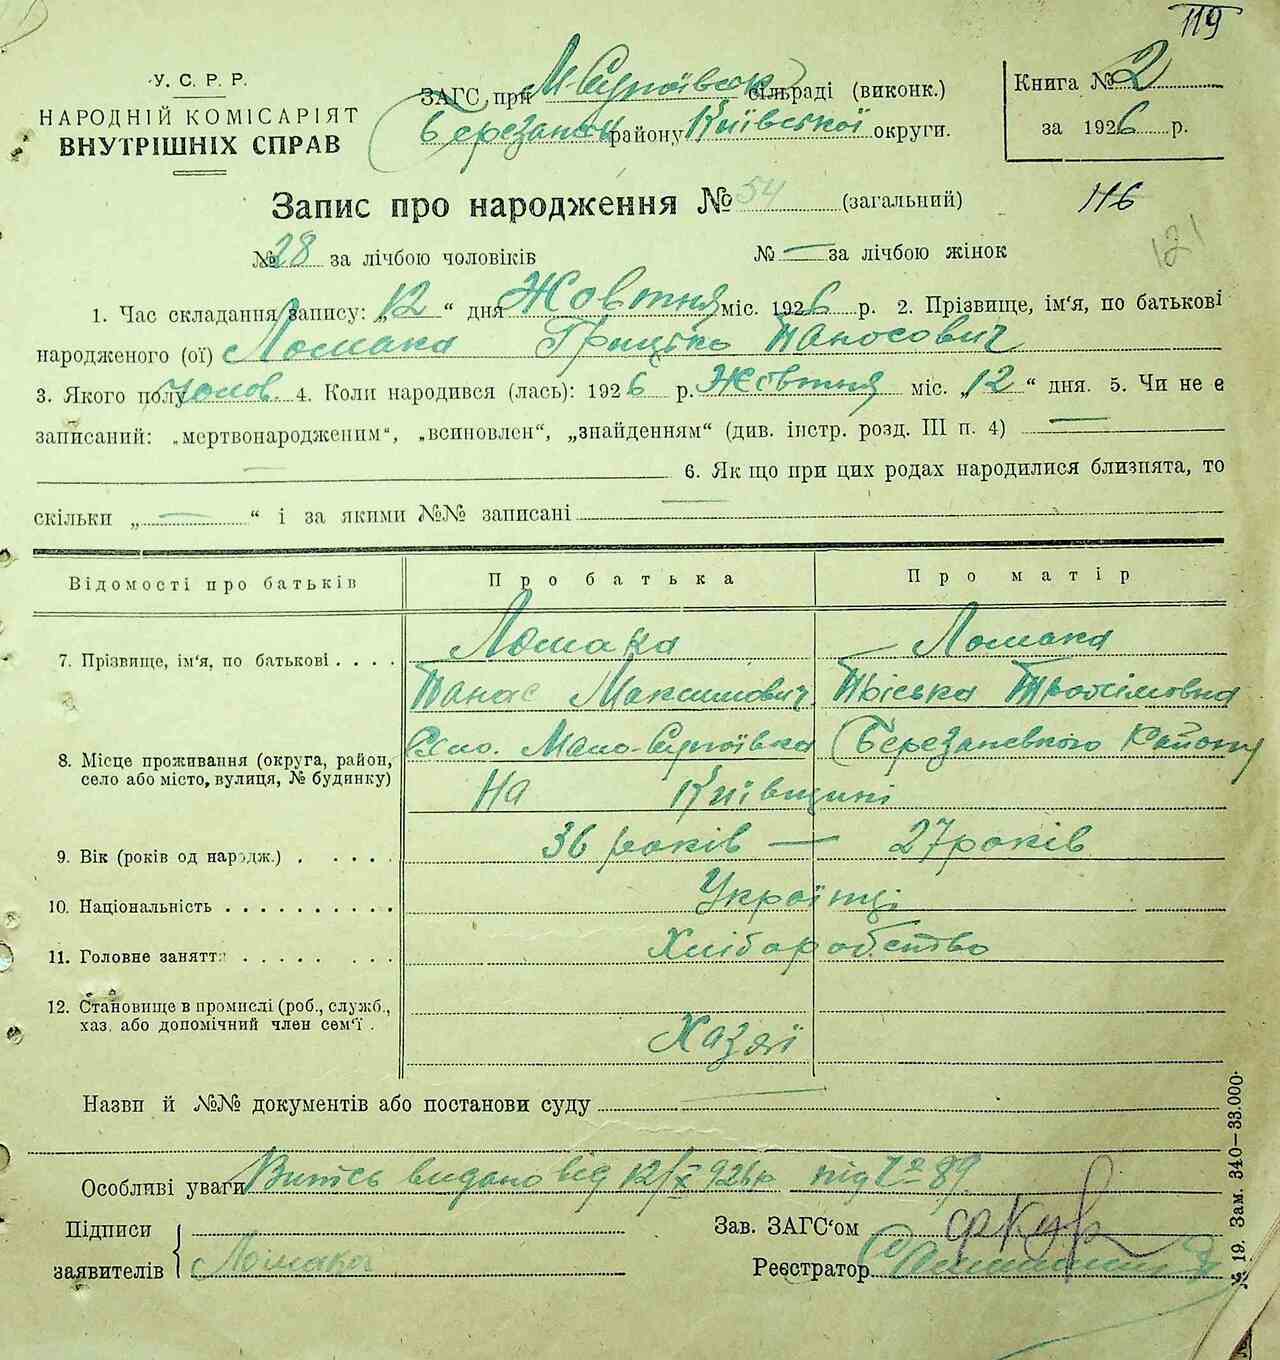 119
У. С. Р. Р.
НАРОДНІЙ КОМІСАРІЯТ
ВНУТРІШНІХ СПРАВ
ЗАГС при М-Супоївськ сільраді (виконк.)
Березанськ району Київської округи.
Книга № 2
за 1926 р.
Запис про народження № 54 (загальний)
116
121
№ 28 за лічбою чоловіків № — за лічбою жінок
1. Час складання запису: „12“ дня Жовтня міс. 1926 р. 2. Прізвище, ім‘я, по батькові
народженого (ої) Ломака Грицько Панасович
3. Якого полу чолов. 4. Коли народився (лась): 1926 р. Жовтня міс. „12“ дня. 5. Чи не є
записаний: „мертвонародженим“, „всиновлен“, „знайденням“ (див. інстр. розд. III п. 4) —
— 6. Як що при цих родах народилися близнята, то
скільки „—“ і за якими №№ записані —
Відомості про батьків Про батька Про матір
7. Прізвище, ім‘я, по батькові . . . . Ломака Ломака
Панас Максимович Пріська Трохимовна
8. Місце проживання (округа, район, село або місто, вулиця, № будинку) Село. Мало-Супоївка Березанського Району
На Київщині
9. Вік (років од народж.) . . . . . 36 років — 27 років
10. Національність . . . . . . . . . . Українці
11. Головне заняття . . . . . . . . Хліборобство
12. Становище в промислі (роб., служб.,
хаз. або допомічний член сем‘ї . Хазяї
Назви й №№ документів або постанови суду —
Особливі уваги Витяг видано від 12/X 926 р під № 89
Підписи
заявителів Ломака
Зав. ЗАГС‘ом
Реєстратор
19. Зам. 340—33.000.